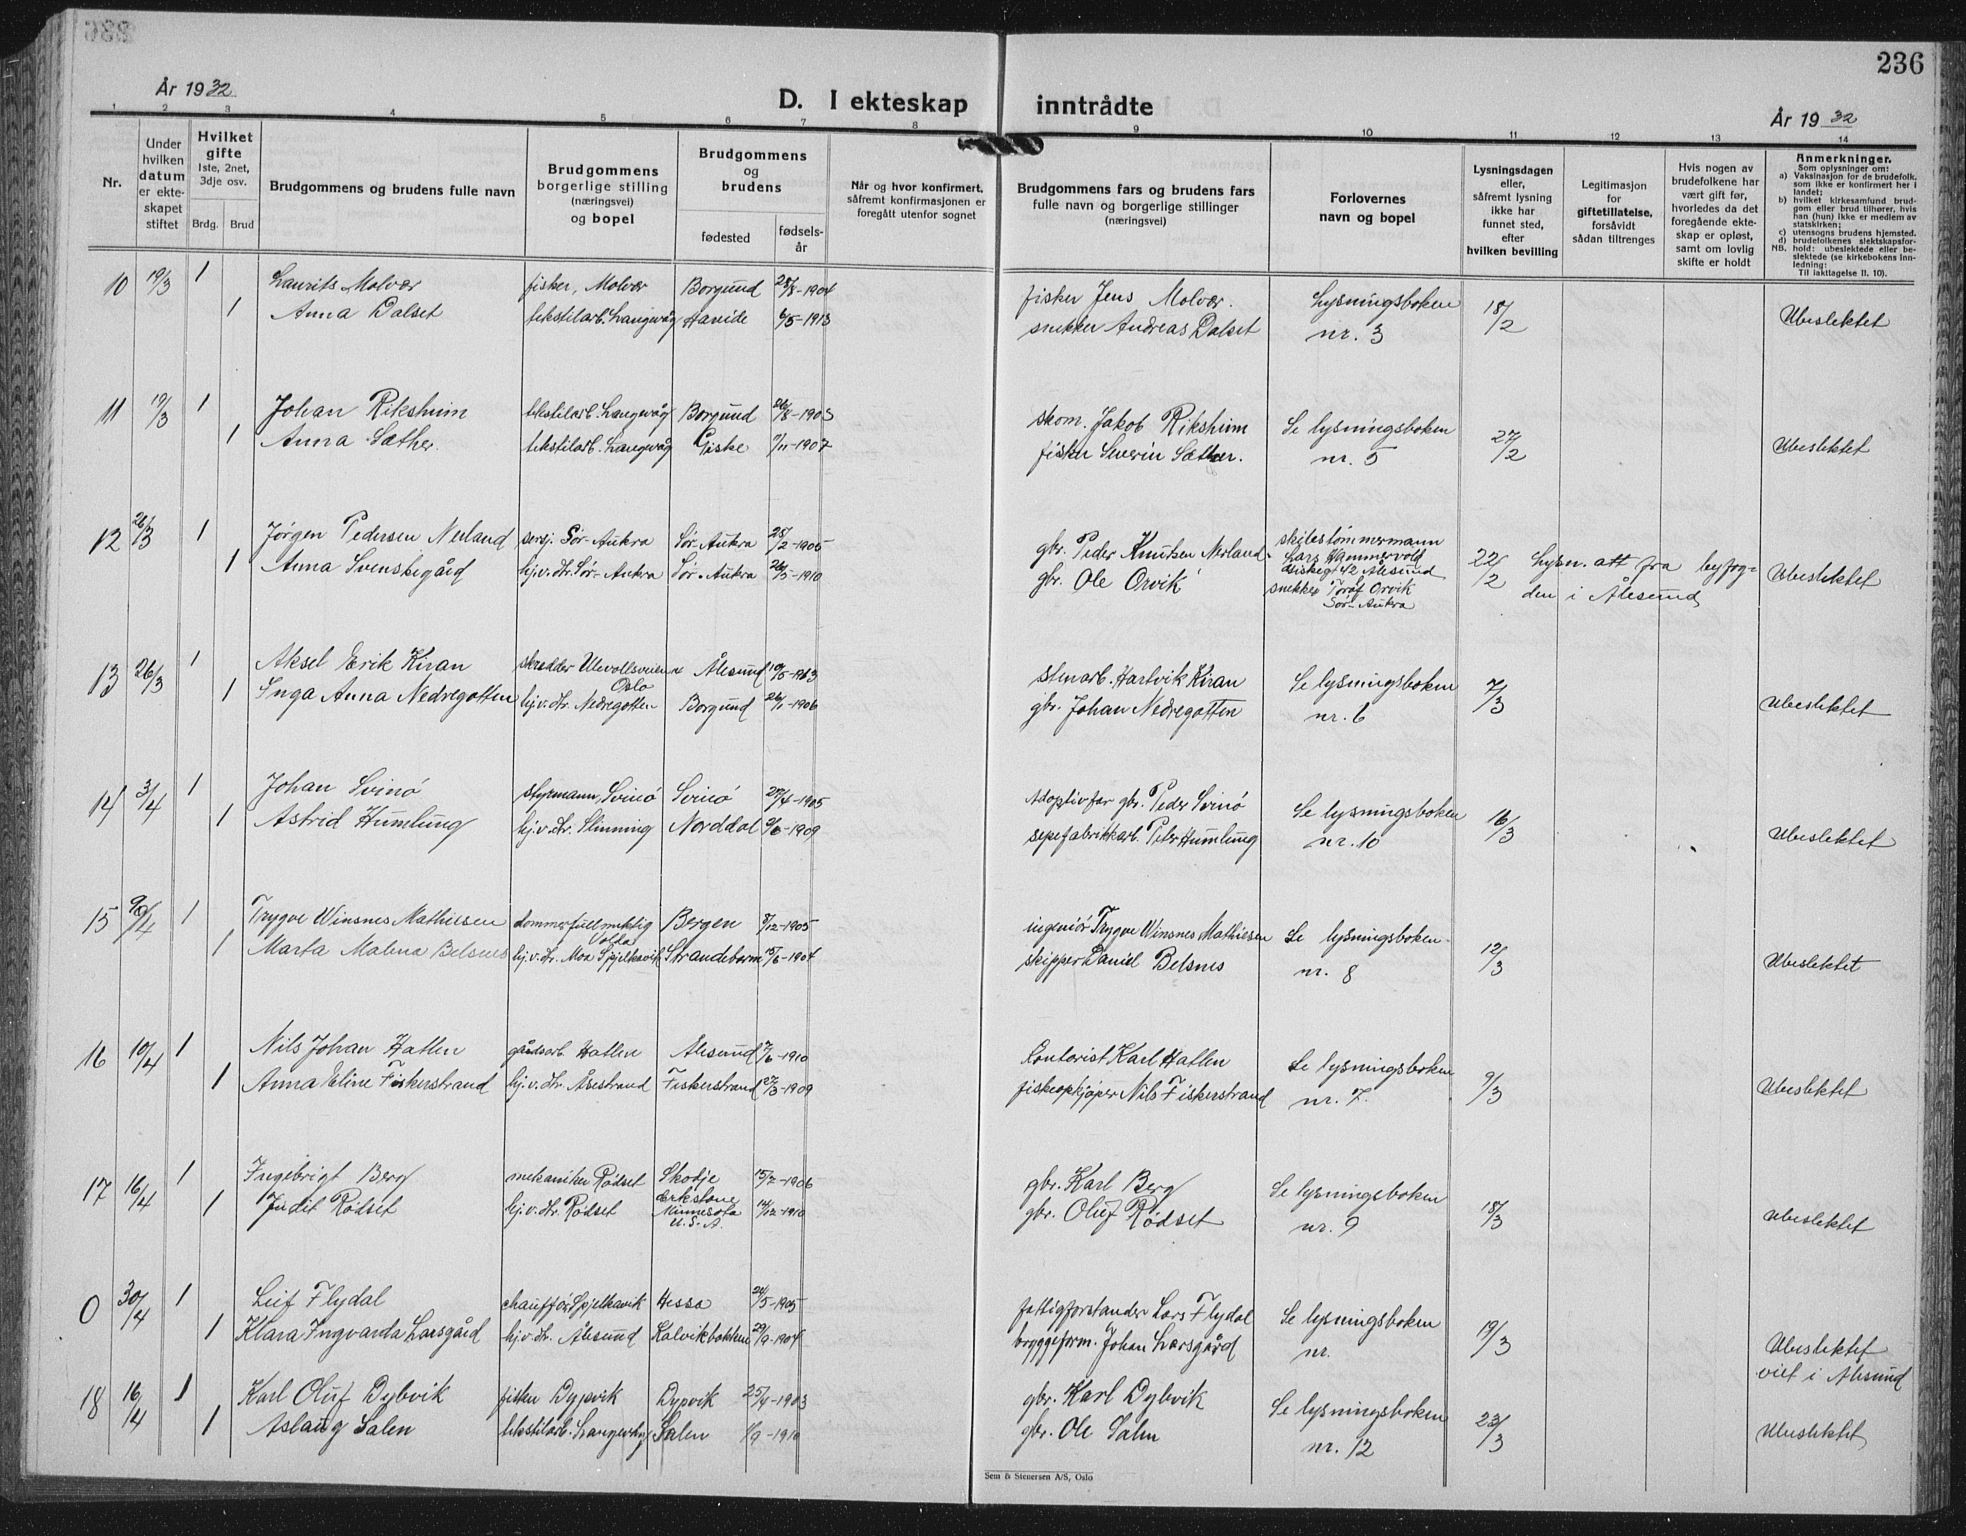 236
År 1932
D. I ekteskap inntrådte
År 1932
1 2 3 4 5 6 7 8 9 10 11 12 13 14
Nr.
Under hvilken datum er ekteskapet stiftet
Hvilket gifte
1ste, 2net, 3dje osv.
Brdg. Brud
Brudgommens og brudens fulle navn
Brudgommens borgerlige stilling (næringsvei) og bopel
Brudgommens og brudens
fødested
fødselsår
Når og hvor konfirmert, såfremt konfirmasjonen er foregått utenfor sognet
Brudgommens fars og brudens fars fulle navn og borgerlige stillinger (næringsvei)
Forlovernes navn og bopel
Lysningsdagen eller, såfremt lysning ikke har funnet sted, efter hvilken bevilling
Legitimasjon for giftetillatelse, forsåvidt sådan tiltrenges
Hvis nogen av brudefolkene har vært gift før, hvorledes da det foregående ekteskap er opløst, samt om lovlig skifte er holdt
Anmerkninger.
Som oplysninger om:
a) Vaksinasjon for de brudefolk, som ikke er konfirmert her i landet;
b) hvilket kirkesamfund brudgom eller brud tilhører, hvis han (hun) ikke er medlem av statskirken;
c) utensogns brudens hjemsted.
d) brudefolkenes slektskapsforhold: ubeslektede eller beslektede (se kirkebokens innledning:
NB. Til iakttagelse II. 10).
10 19/3 1 Laurits Molvær fisker, Molvær Borgund 28/8-1904 fisker Jens Molvær. Lysningsboken 18/2
1 Anna Dalset tekstilarb. Langevåg Havide 6/5-1913 snekker Andreas Dalset nr. 3 Ubeslektet
11 19/3 1 Johan Riksheim tekstilarb. Langevåg Borgund 26/8-1903 skom. Jakob Riksheim Se lysningsboken 27/2
1 Anna Sæther. tekstilarb. Langevåg Giske 7/11-1907 fisker Severin Sæther. nr. 5 Ubeslektet
12 26/3 1 Jørgen Pedersen Nerland sersj. Sør-Aukra Sør-Aukra 28/2-1905 gbr. Peder Knutsen Nerland skibstømmermann Lars Hammervold 22/2 Lysn. att fra byfog-
1 Anna Svenskegård hj.v.hr. Sør-Aukra Sør-Aukra 26/5-1910 gbr. Ole Orvik 42 Ålesund snekker Orvik Sør-Aukra den i Ålesund Ubeslektet
13 26/3 1 Aksel Erik Kiran skredder Ulevollsveien Oslo Ålesund 10/5- stenarb. Hartvik Kiran Se lysningsboken 7/3
1 Inga Anna Nedregotten hj.v.hr. Nedregotten Borgund 26/11-1906 gbr. Johan Nedregotten nr. 6 Ubeslektet
14 3/4 1 Johan Svinø styrmann, Svinø Svinø 27/4-1905 Adoptivfar gbr. Peder Svinø Se lysningsboken 16/3
1 Astrid Humlung hj.v.hr. Slinning Norddal 9/6-1909 sepefabrikkarb. Peter Humlung nr. 10 Ubeslektet
15 9/4 1 Trygve Winsnes Mathiesen dommerfullmektig Volda Bergen 8/12-1905 ingeniør Trygve Winsnes Mathiesen Se lysningsboken 12/3
1 Marta Malena Belsnes hj.v.hr. Moa Spjelkavik Strandebarm 15/6-1904 skipper Daniel Belsnes nr. 8 Ubeslektet
16 10/4 1 Nils Johan Hatlen gårdsarb. Hatlen Ålesund 7/6-1910 Contorist Karl Hatlen Se lysningsboken 9/3
1 Anna Eline Fiskerstrand hj.v.hr. Åsestrand Fiskerstrand 27/3-1909 fiskeopkjøper Nils Fiskerstrand nr. 7. Ubeslektet
17 16/4 1 Ingebrigt Berg mekaniker Rødset Skodje 15/2-1906 gbr. Karl Berg Se lysningsboken 18/3
1 Judit Rødset hj.v.hr. Rødset Minnesota U.S.A. 14/12-1910 gbr. Oluf Rødset nr. 9 Ubeslektet
0 30/4 1 Leif Flydal chauffør Spjelkavik Hessa 24/5-1905 fattigforstander Lars Flydal Se lysningsboken 19/3
1 Klara Ingvarda Larsgård hj.v.hr. Ålesund Kalvikbakken 29/9-1904 bryggeform. Johan Larsgård nr. Ubeslektet
viet i Ålesund
18 16/4 1 Karl Oluf Dybvik fisker Dypvik Dypvik 25/4-1903 gbr. Karl Dybvik Se lysningsboken 23/3
1 Aslaug Salen tekstilarb. Langevåg Salen 1/9-1910 gbr. Ole Salen nr. 12 Ubeslektet
Sem & Stenersen A/S, Oslo